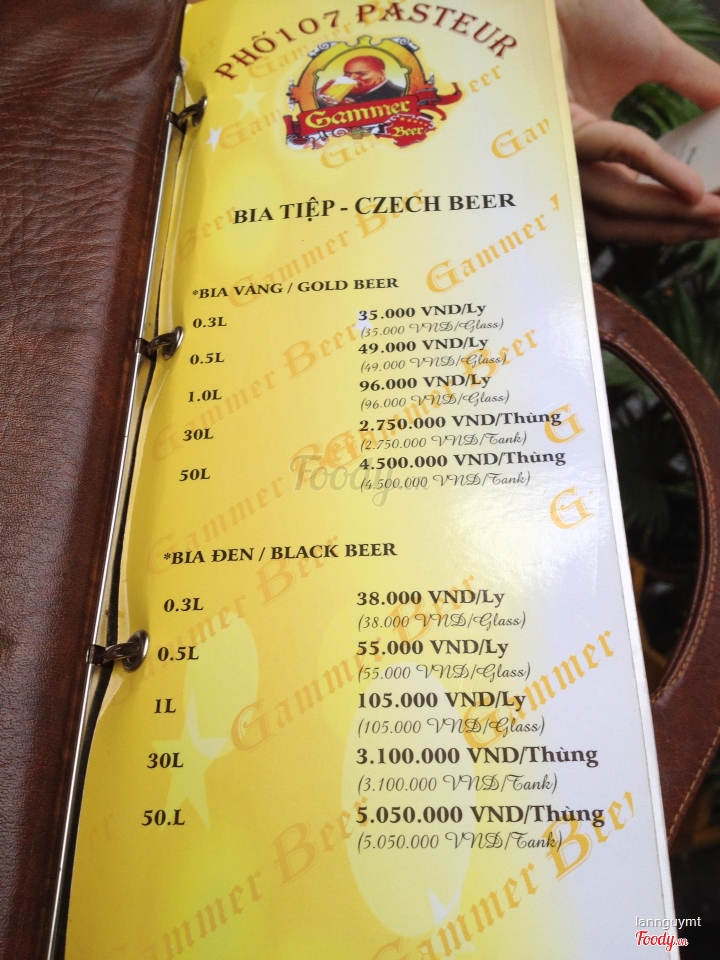 PHỐ 107 PASTEUR
Gammer
Beer
BIA TIỆP - CZECH BEER
*BIA VÀNG / GOLD BEER
0.3L 35.000 VND/Ly
(35.000 VND/Glass)
0.5L 49.000 VND/Ly
(49.000 VND/Glass)
1.0L 96.000 VND/Ly
(96.000 VND/Glass)
30L 2.750.000 VND/Thùng
(2.750.000 VND/Tank)
50L 4.500.000 VND/Thùng
(4.500.000 VND/Tank)
*BIA ĐEN / BLACK BEER
0.3L 38.000 VND/Ly
(38.000 VND/Glass)
0.5L 55.000 VND/Ly
(55.000 VND/Glass)
1L 105.000 VND/Ly
(105.000 VND/Glass)
30L 3.100.000 VND/Thùng
(3.100.000 VND/Tank)
50.L 5.050.000 VND/Thùng
(5.050.000 VND/Tank)
Foody.vn
lannguymt
Foody.vn